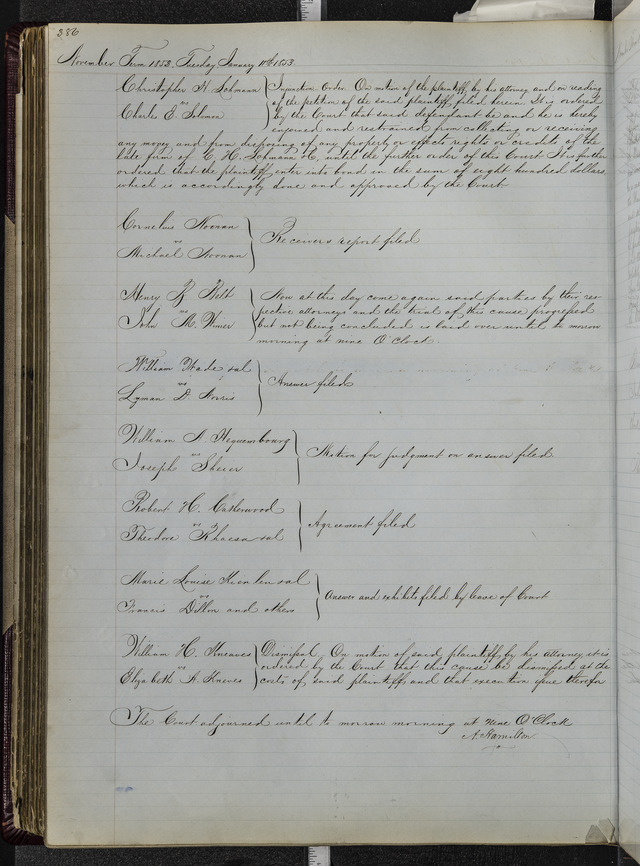 386
November Term 1853, Tuesday January 11th 1853.
Christopher H. Lohmann Injunction Order. On motion of the plaintiff by his attorney and on reading
vs of the petition of the said plaintiff filed herein. It is ordered
Charles E. Salmon by the Court that said defendant be and he is hereby
enjoined and restrained from collecting or receiving
any money and from disposing of any property or effects rights or credits of the
late firm of C. H. Lohmann & Co, until the further order of this Court. It is further
ordered that the plaintiff enter into bond in the sum of eight hundred dollars,
which is accordingly done and approved by the Court.
Cornelius Noonan
vs Receivers report filed
Michael Noonan
Henry R. Belt Now at this day come again said parties by their res-
vs pective attorneys and the trial of this cause progressed
John M. Wimer but not being concluded is laid over until to morrow
morning at nine O'Clock.
William Wade et al
vs Answer filed
Lyman D. Norris
William A. Hequembourg
vs Motion for judgment on answer filed
Joseph Sheer
Robert H. Catherwood
vs Agreement filed
Theodore et al
Marie Louise et al
vs Answer and exhibits filed by leave of Court
Francis Dillon and others
William H. Kneaves Dismissal On motion of said plaintiff, by his Attorney, it is
vs ordered by the Court that this cause be dismissed at the
Elizabeth A. Kneves costs of said plaintiff and that execution issue therefor
The Court adjourned until to morrow morning at nine O'Clock
A. Hamilton